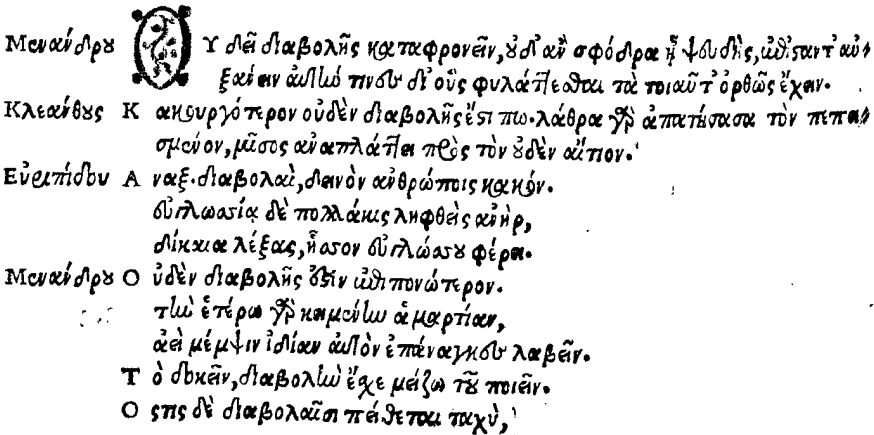 Μενάνδρου Οὐ δεῖ διαβολῆς καταφρονεῖν, οὐδ' ἂν σφόδρα ᾖ ψευδής, ἐπίσταντ' αὔ-
ξειν αὐτήν τινες δι' οὓς φυλάττεσθαι τὰ τοιαῦτ' ὀρθῶς ἔχειν.
Κλεάνθους Κακουργότερον οὐδὲν διαβολῆς ἔστι πω. λάθρα γὰρ ἀπατήσασα τὸν πεπει-
σμένον, μῖσος ἀναπλάττει πρὸς τὸν οὐδὲν αἴτιον.
Εὐριπίδου Αναξ. διαβολαὶ, δεινὸν ἀνθρώποις κακόν.
εὐγλωσσίᾳ δὲ πολλάκις ληφθεὶς ἀνὴρ,
δίκαια λέξας, ἧσσον εὐγλώσσου φέρει.
Μενάνδρου Οὐδὲν διαβολῆς ἐστὶν ἐπιπονώτερον.
τὴν ἑτέρῳ γὰρ κειμένην ἁμαρτίαν,
ἀεὶ μέμψιν ἰδίαν αὐτὸν ἐπάναγκες λαβεῖν.
Τὸ δοκεῖν, διαβολὴν ἔχε μείζω τοῦ ποιεῖν.
Οστις δὲ διαβολαῖσι πείθεται ταχὺ,